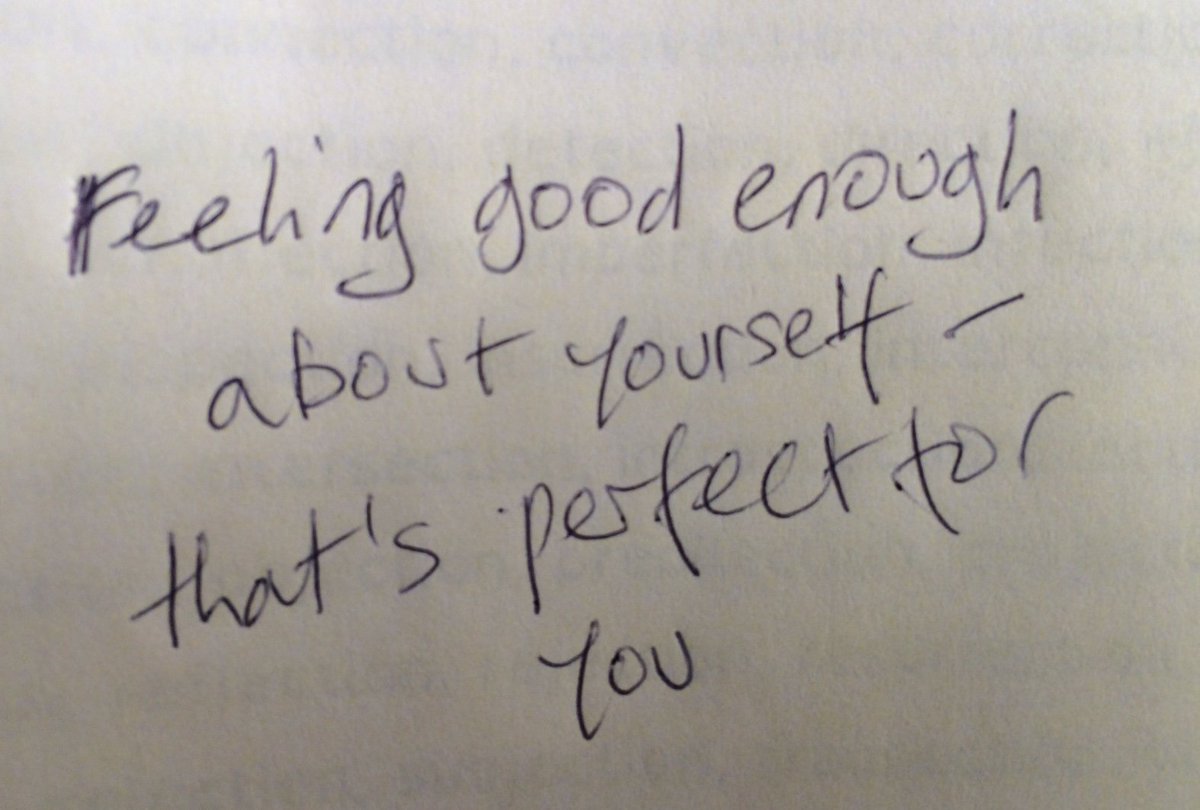 Feeling good enough
about yourself –
that's perfect for
you